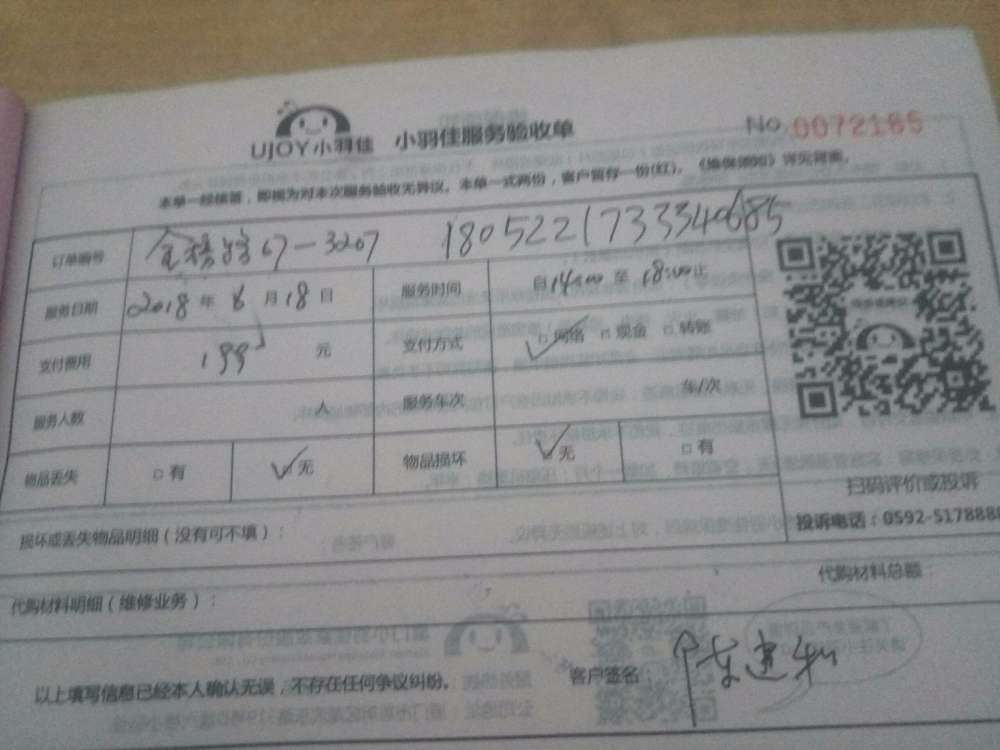 UJOY小羽佳 小羽佳服务验收单 No 0072185
本单一经签署，即视为对本次服务验收无异议。本单一式两份，客户留存一份(红)。《维保须知》详见背面。
订单编号 金榜路67-3207 1805221733340685
服务日期 2018年6月18日 服务时间 自14:00至18:00止
支付费用 199元 支付方式 ☑网络 □现金 □转账
服务人数 人 服务车次 车/次
物品丢失 □有 ☑无 物品损坏 ☑无 □有
扫码评价或投诉
损坏或丢失物品明细（没有可不填）：
投诉电话：0592-5178888
代购材料明细（维修业务）：
代购材料总额
以上填写信息已经本人确认无误，不存在任何争议纠纷。
客户签名：